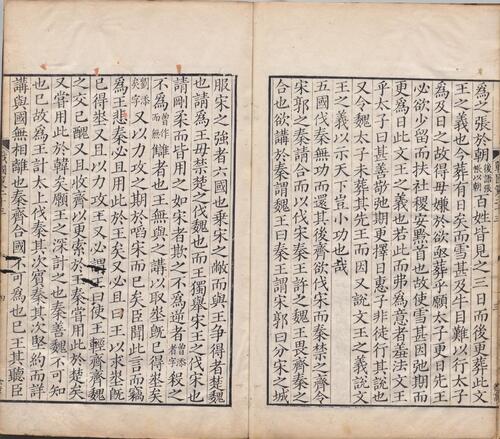 為之張於朝後語張帳以朝百姓皆見之三日而後更葬此文
王之義也今葬有日矣而雪甚及牛目難以行太子
為及日之故得毋嫌於欲亟葬乎願太子更日先王
必欲少留而扶社稷安黔首也故使雪甚因弛期而
更為日此文王之義也若此而弗為意者羞法文王
乎太子曰甚善敬弛期更擇日惠子非徒行其說也
又令魏太子未葬其先王而因又說文王之義說文
王之義以示天下豈小功也哉
五國伐秦無功而還其後齊欲伐宋而秦禁之齊令
宋郭之秦請合而以伐宋秦王許之魏王畏齊秦之
合也欲講於秦謂魏王曰秦王謂宋郭曰分宋之城
服宋之強者六國也乗宋之敝而與王爭得者楚魏
也請為王毋禁楚之伐魏也而王獨舉宋王之伐宋也
請剛柔而皆用之如宋者欺之不為逆者曾添者字殺之
不為讐者也王無與之講以取埊旣已得埊矣
又以力攻之期於啗宋而已矣臣聞此言而竊
為王悲秦必且用此於王矣又必且曰王以求埊旣
已得埊又且以力攻王又必謂王曰使王輕齊齊魏
之交已醜又且收齊以更索於王秦嘗用此於楚矣
又嘗用此於韓矣願王之深計之也秦善魏不可知
也已故為王計太上伐秦其次賓秦其次堅約而詳
講與國無相離也秦齊合國不可為也已王其聽臣